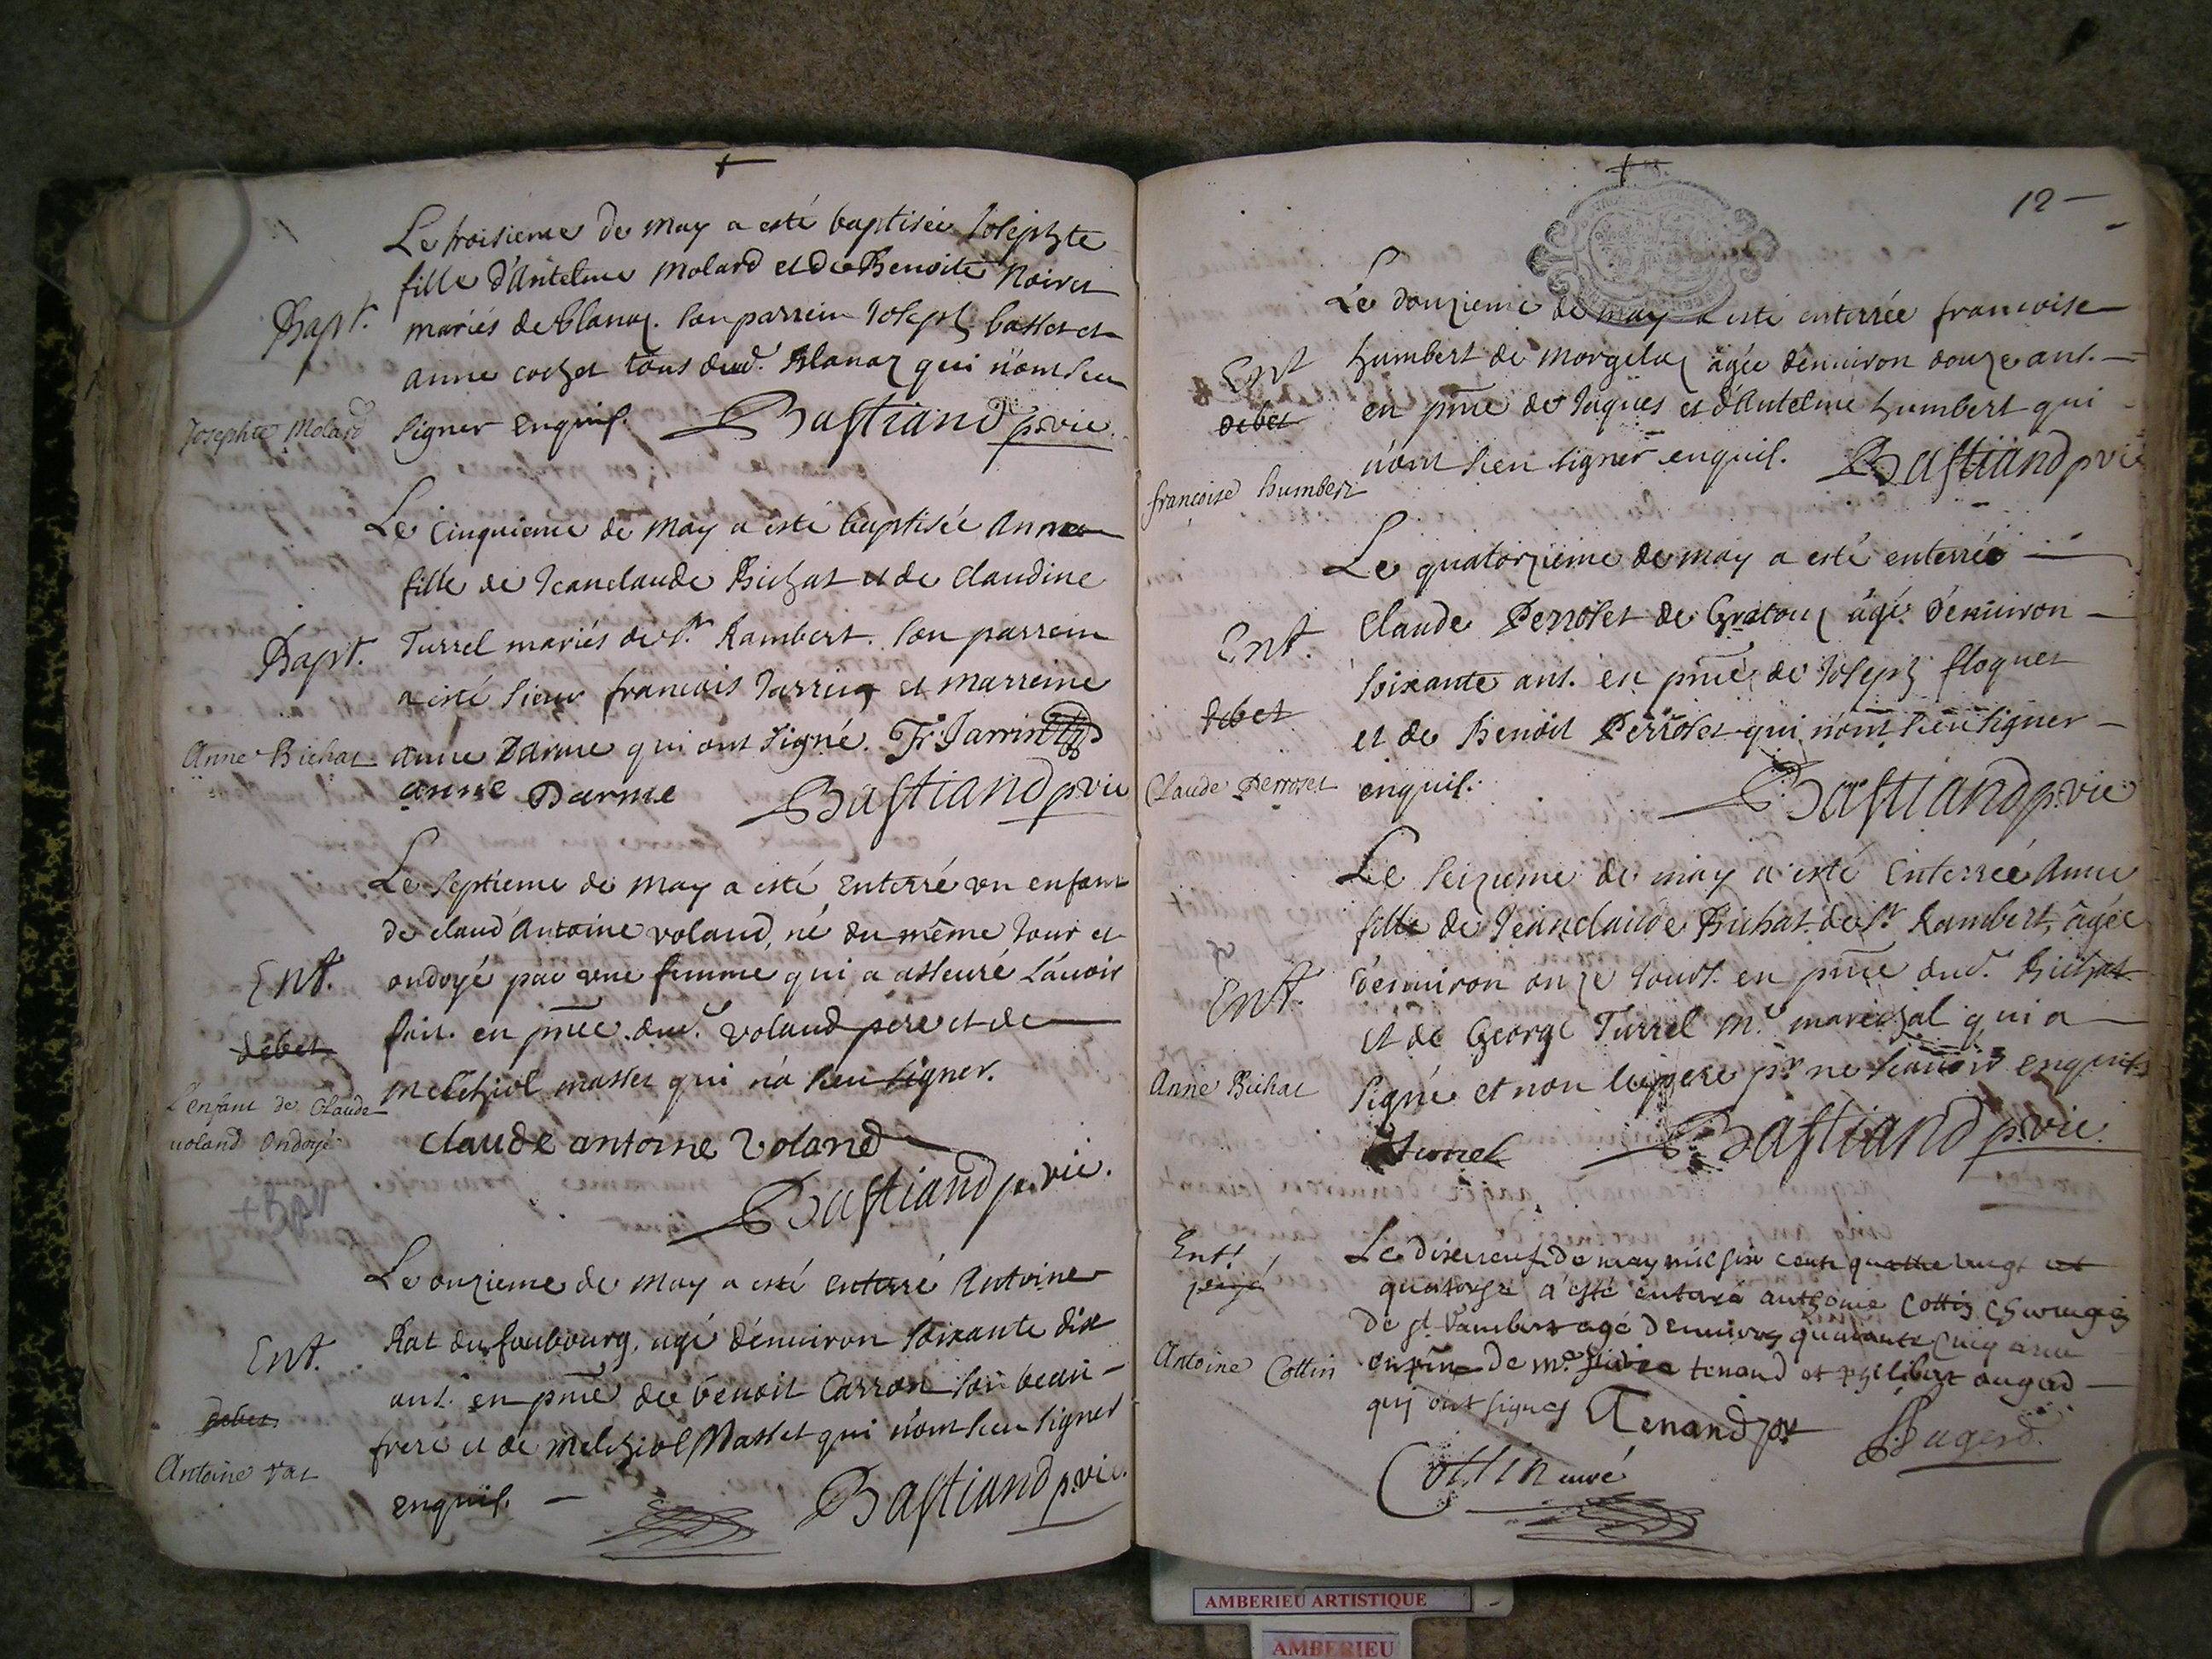 Le troisieme de may a esté baptisée Josephte
fille d'Antelme Molard et de Benoite Noiret
Bapt. mariés de blanaz. son parrein Joseph basset et
anne cochet tous dud. Blanaz qui n'ont sceu
Josephte Molard signer enquis. Bastiand p. vic.
Le cinquieme de may a esté baptisée Anne
fille de Jeanclaude Bichat et de Claudine
Bapt. Turrel mariés de St. Rambert. son parrein
a esté sieur francois Jarrin et marreine
Anne Bichat anne Darme qui ont signé. Fr. Jarrin
anne Darme Bastiand p vic
Le septieme de may a esté enterré un enfant
de claud' Antoine voland, né du même jour et
Ent. ondoyé par une femme qui a asseuré l'avoir
debet fait. en pnce dud. voland pere et de
Melchiol masset qui n'a sceu signer.
L'enfant de Claude
voland Ondoyé
claude antoine Voland
Bastiand p. vic.
Le onzieme de may a esté enterré Antoine
Ent. Rat du faubourg, agé d'environ soixante dix
ans. en pnce de benoit Carron son beau-
debet frere et de melchiol Masset qui n'ont sceu signer
Antoine rat enquis. Bastiand p. vic.
12
Le douzieme de may a esté enterrée francoise
Ent humbert de morgelaz âgée d'environ douze ans.
debet en pnce de Jaques et d'Antelme humbert qui
n'ont sceu signer enquis. Bastiand p vic
françoise humbert
Le quatorzieme de may a esté enterrée
Ent. Claude Perroset de Gratoux âgé d'environ
soixante ans. en pnce de Joseph floquet
debet et de Benoit Perroset qui n'ont sceu signer
Claude Perroset enquis. Bastiand p. vic
Le seizieme de may a esté enterrée Anne
fille de Jeanclaude Bichat de St. Rambert, âgée
Ent. d'environ onze jours. en pnce dud. Bichat
et de George Turrel Me. marechal qui a
Anne Bichat signé et non le pere pr ne scavoir enquis
Turrel Bastiand p. vic.
Ent. Le dixneuf de may mil six cent quattre vingt et
quatorze a esté enterré anthoine Cottin
de st Rambert agé d'environ quarante cinq ans
Antoine Cottin en pnce de tenand et philibert augerd
qui ont signes Tenand Augerd
Cottin curé
AMBERIEU ARTISTIQUE
AMBERIEU